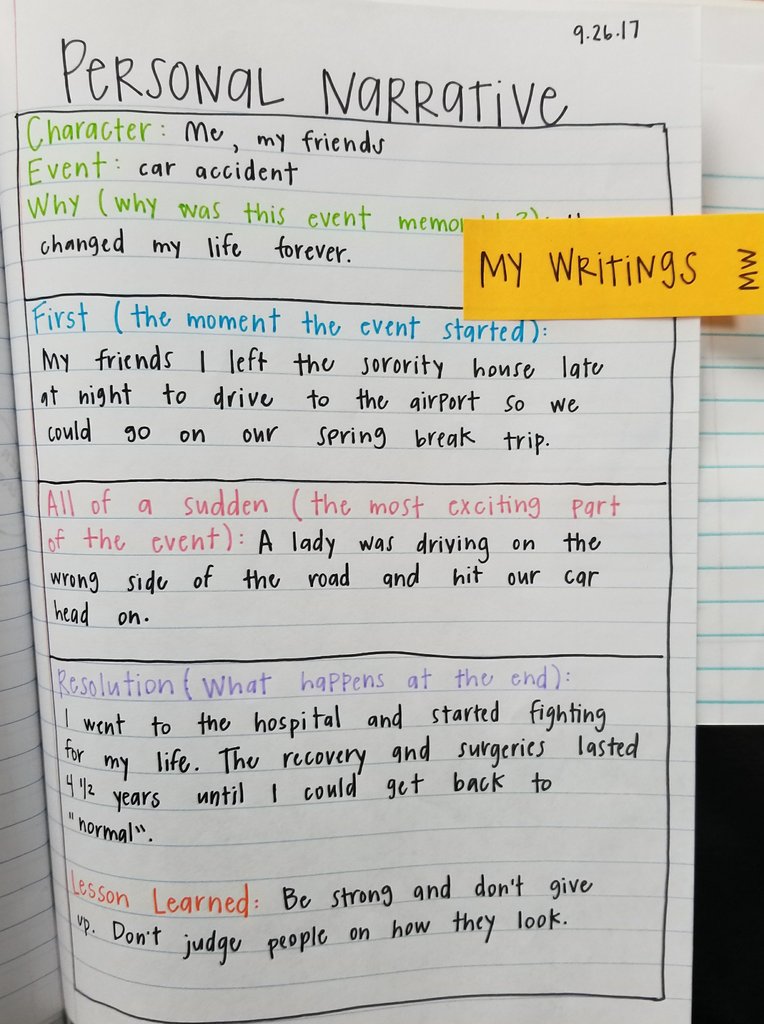 9.26.17
PERSONAL NARRATIVE
Character: Me, my friends
Event: car accident
Why (why was this event
changed my life forever.
MY WRITINGS MW
First (the moment the event started):
My friends I left the sorority house late
at night to drive to the airport so we
could go on our spring break trip.
All of a sudden (the most exciting part
of the event): A lady was driving on the
wrong side of the road and hit our car
head on.
Resolution (What happens at the end):
I went to the hospital and started fighting
for my life. The recovery and surgeries lasted
4 1/2 years until I could get back to
"normal".
Lesson Learned: Be strong and don't give
up. Don't judge people on how they look.